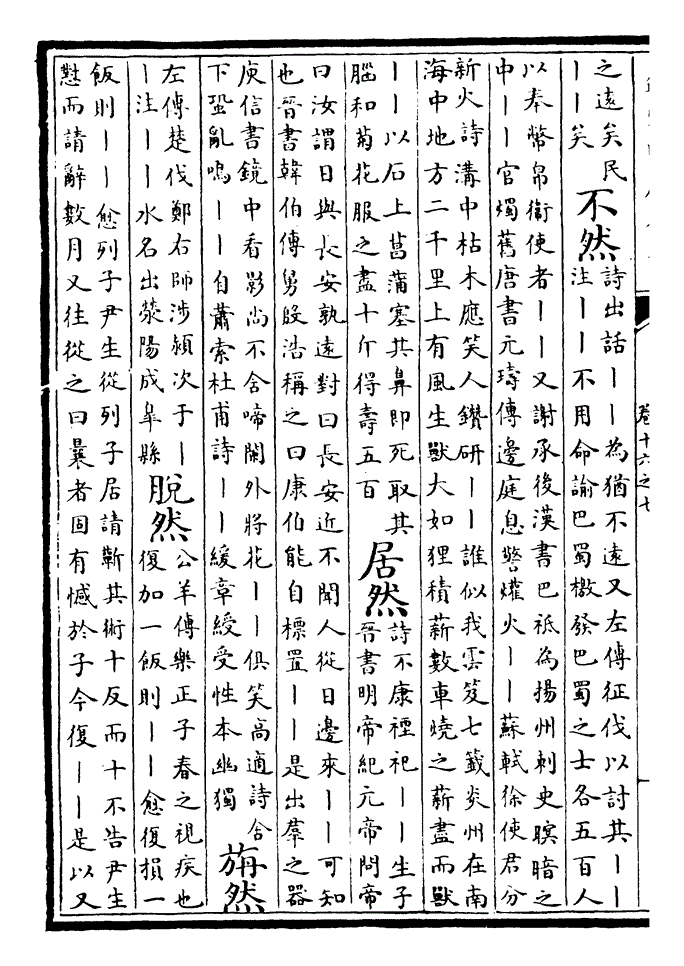 之遠矣民
｜｜矣
不然
詩出話｜｜為猶不遠又左傳征伐以討其｜｜
注｜｜不用命諭巴蜀檄發巴蜀之士各五百人
以奉幣帛衞使者｜｜又謝承後漢書巴祗為揚州刺史暝暗之
中｜｜官燭舊唐書元璹傳邊庭息警爟火｜｜蘇軾徐使君分
新火詩溝中枯木應笑人鑽研｜｜誰似我雲笈七籤炎州在南
海中地方二千里上有風生獸大如狸積薪數車燒之薪盡而獸
｜｜以石上菖蒲塞其鼻即死取其
腦和菊花服之盡十斤得壽五百
居然
詩不康禋祀｜｜生子
晉書明帝紀元帝問帝
曰汝謂日與長安孰遠對曰長安近不聞人從日邊來｜｜可知
也晉書韓伯傳舅殷浩稱之曰康伯能自標置｜｜是出羣之器
庾信書鏡中看影尚不含啼闌外將花｜｜俱笑高適詩舍
下蛩亂鳴｜｜自蕭索杜甫詩｜｜緩章綬受性本幽獨
旃然
左傳楚伐鄭右師涉潁次于｜
｜注｜｜水名出滎陽成皋縣
脫然
公羊傳樂正子春之視疾也
復加一飯則｜｜愈復損一
飯則｜｜愈列子尹生從列子居請蘄其術十反而十不告尹生
懟而請辭數月又往從之曰曩者固有憾於子今復｜｜是以又
卷十六之七